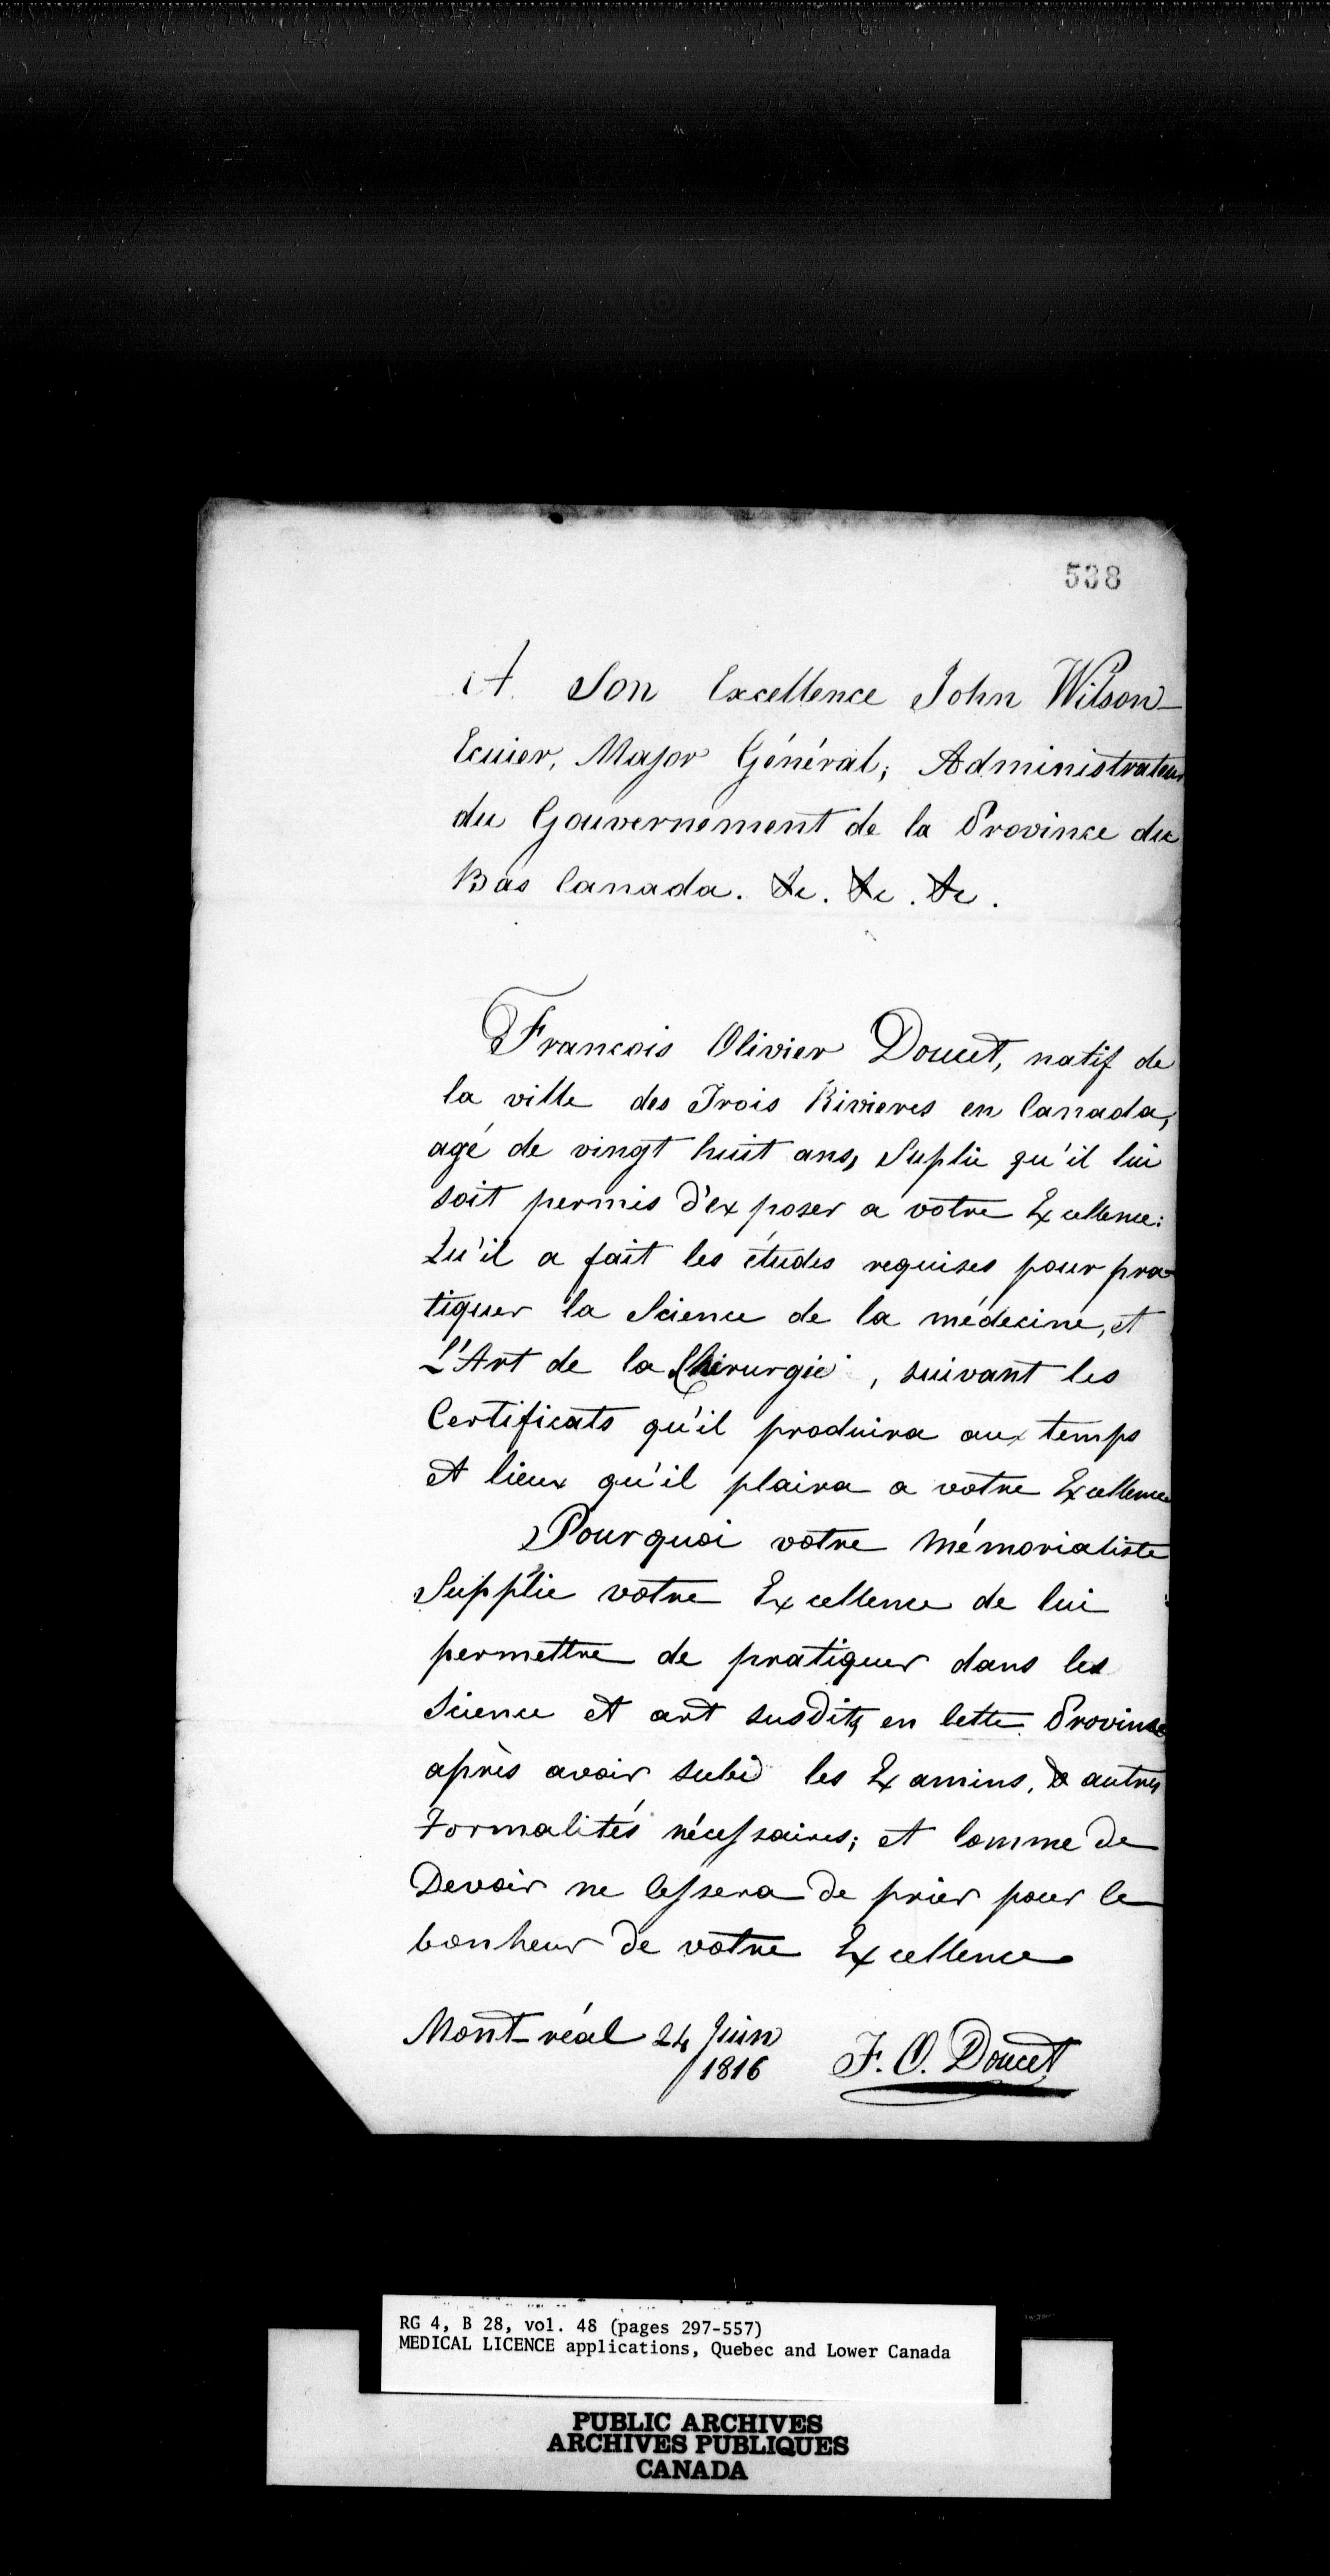 538
A Son Excellence John Wilson
Ecuier, Major Général, Administrateur
du Gouvernement de la Province du
Bas Canada. &c. &c. &c.
Francois Olivier Doucet, natif de
la ville des Trois Rivieres en Canada,
agé de vingt huit ans, Suplie qu'il lui
soit permis d'exposer a votre Excellence:
Qu'il a fait les études requises pour pra-
tiquer la Science de la médecine, et
L'Art de la Chirurgie, suivant les
Certificats qu'il produira aux temps
et lieux qu'il plaira a votre Excellence
Pourquoi votre Mémorialiste
Supplie votre Excellence de lui
permettre de pratiquer dans les
Science et art susdits en Cette Province
après avoir subid les Examins, & autres
Formalités nécessaires; et Comme de
Devoir ne Cessera de prier pour le
bonheur de votre Excellence
Montréal 24 Juin
1816 F. O. Doucet
RG 4, B 28, vol. 48 (pages 297-557)
MEDICAL LICENCE applications, Quebec and Lower Canada
PUBLIC ARCHIVES
ARCHIVES PUBLIQUES
CANADA